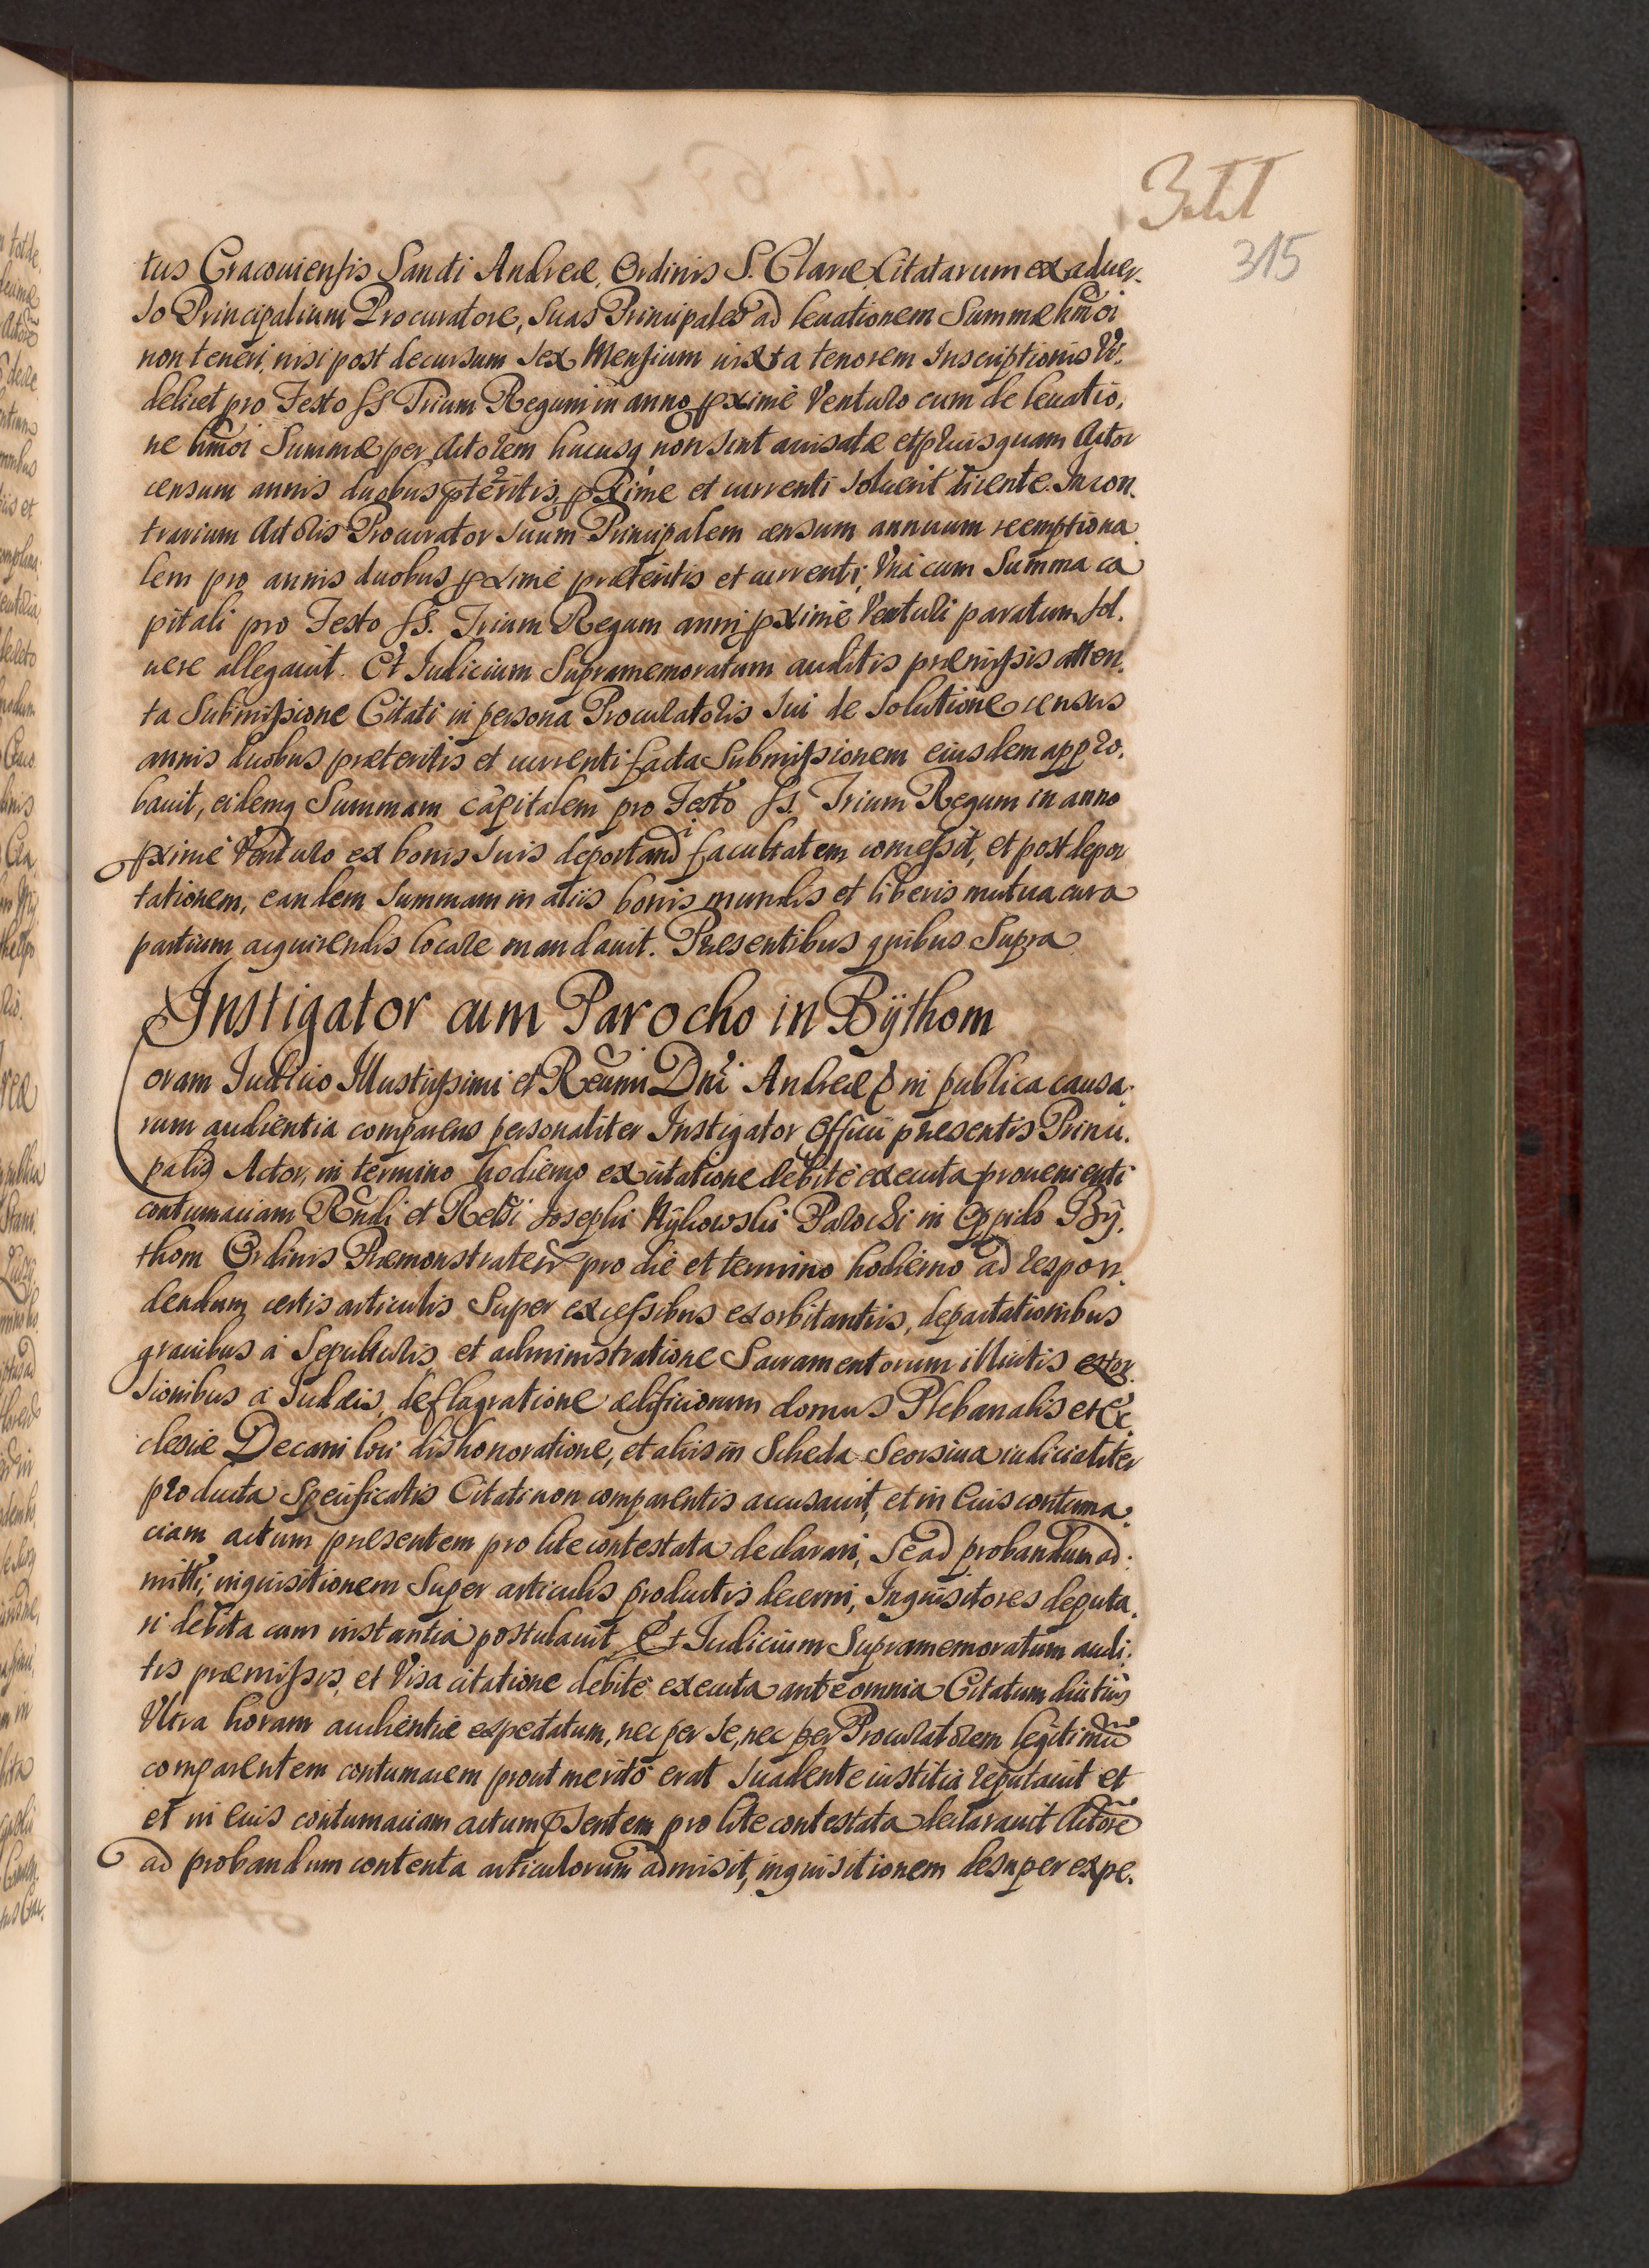 311
315
tus Cracouiensis Sancti Andreæ, Ordinis S. Claræ Citatarum ex aduer-
so Principalium Procuratore, suas Principales ad leuationem Summæ hmoi
non teneri, nisi post decursum sex Mensium iuxta tenorem Inscriptionis Vi-
delicet pro Festo SS Trium Regum in anno pxime Venturo cum de leuatio-
ne hmoi Summæ per Actorem hucusq non sint auisatæ et pluisquam Actor
censum annis duobus pteritis, pxime et currenti soluerit dicente. In con-
trarium Actoris Procurator suum Principalem censum annuum reemptiona-
lem pro annis duobus pxime præteritis et currenti, Vna cum Summa ca
pitali pro Festo SS. Trium Regum anni pxime Venturi paratum sol-
uere allegauit. Et Iudicium Supramemoratum auditis præmissis atten-
ta Submissione Citati in persona Procuratoris sui de solutione census
annis duobus præteritis et currenti facta Submissionem eiusdem appro-
bauit, eidemq Summam capitalem pro Festo SS. Trium Regum in anno
pxime Venturo ex bonis suis deportandi facultatem concessit, et post depor
tationem, eandem summam in aliis bonis mundis et liberis mutua cura
partium acquirendis locare mandauit. Presentibus quibus Supra
Instigator cum Parocho in Bÿthom
Coram Iudicio Illustrissimi et Reumi Dni Andreæ in publica causa-
rum audientia comparens personaliter Instigator Officii presentis Princi-
palis Actor, in termino hodierno ex citatione debite executa proueniente
contumaciam Rndi et Relsi Josephi Parochi in Oppido Bÿ-
thom Ordinis Præmonstraten pro die et termino hodierno ad respon-
dendum certis articulis Super excessibus exorbitantiis, depactationibus
grauibus a Sepulturis et administratione Sacramentorum illicitis extor-
sionibus a Iudæis, deflagratione ædificiorum domus Plebanalis et Ec-
clesiæ Decani loci dishonoratione, et aliis in Scheda Seorsiua iudicialiter
producta Specificatis Citati non comparentis accusauit, et in eius contuma-
ciam actum presentem pro lite contestata declarari, Se ad probandum ad-
mitti, inquisitionem Super articulis productis decerni, Inquisitores deputa-
ri debita cum instantia postulauit Et Iudicium Supramemoratum audi-
tis præmissis, et Visa citatione debite executa ante omnia Citatum diutius
Vltra horam audientiæ expectatum, nec per se, nec per Procuratorem legitimu
comparentem contumacem prout merito erat suadente iustitia reputauit et
et in eius contumaciam actum psentem pro lite contestata declarauit Actore
ad probandum contenta articulorum admisit, inquisitionem desuper expe-